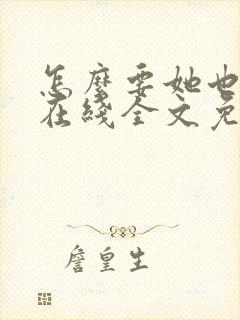 怎麼要她也
在綫全文免
詹皇生